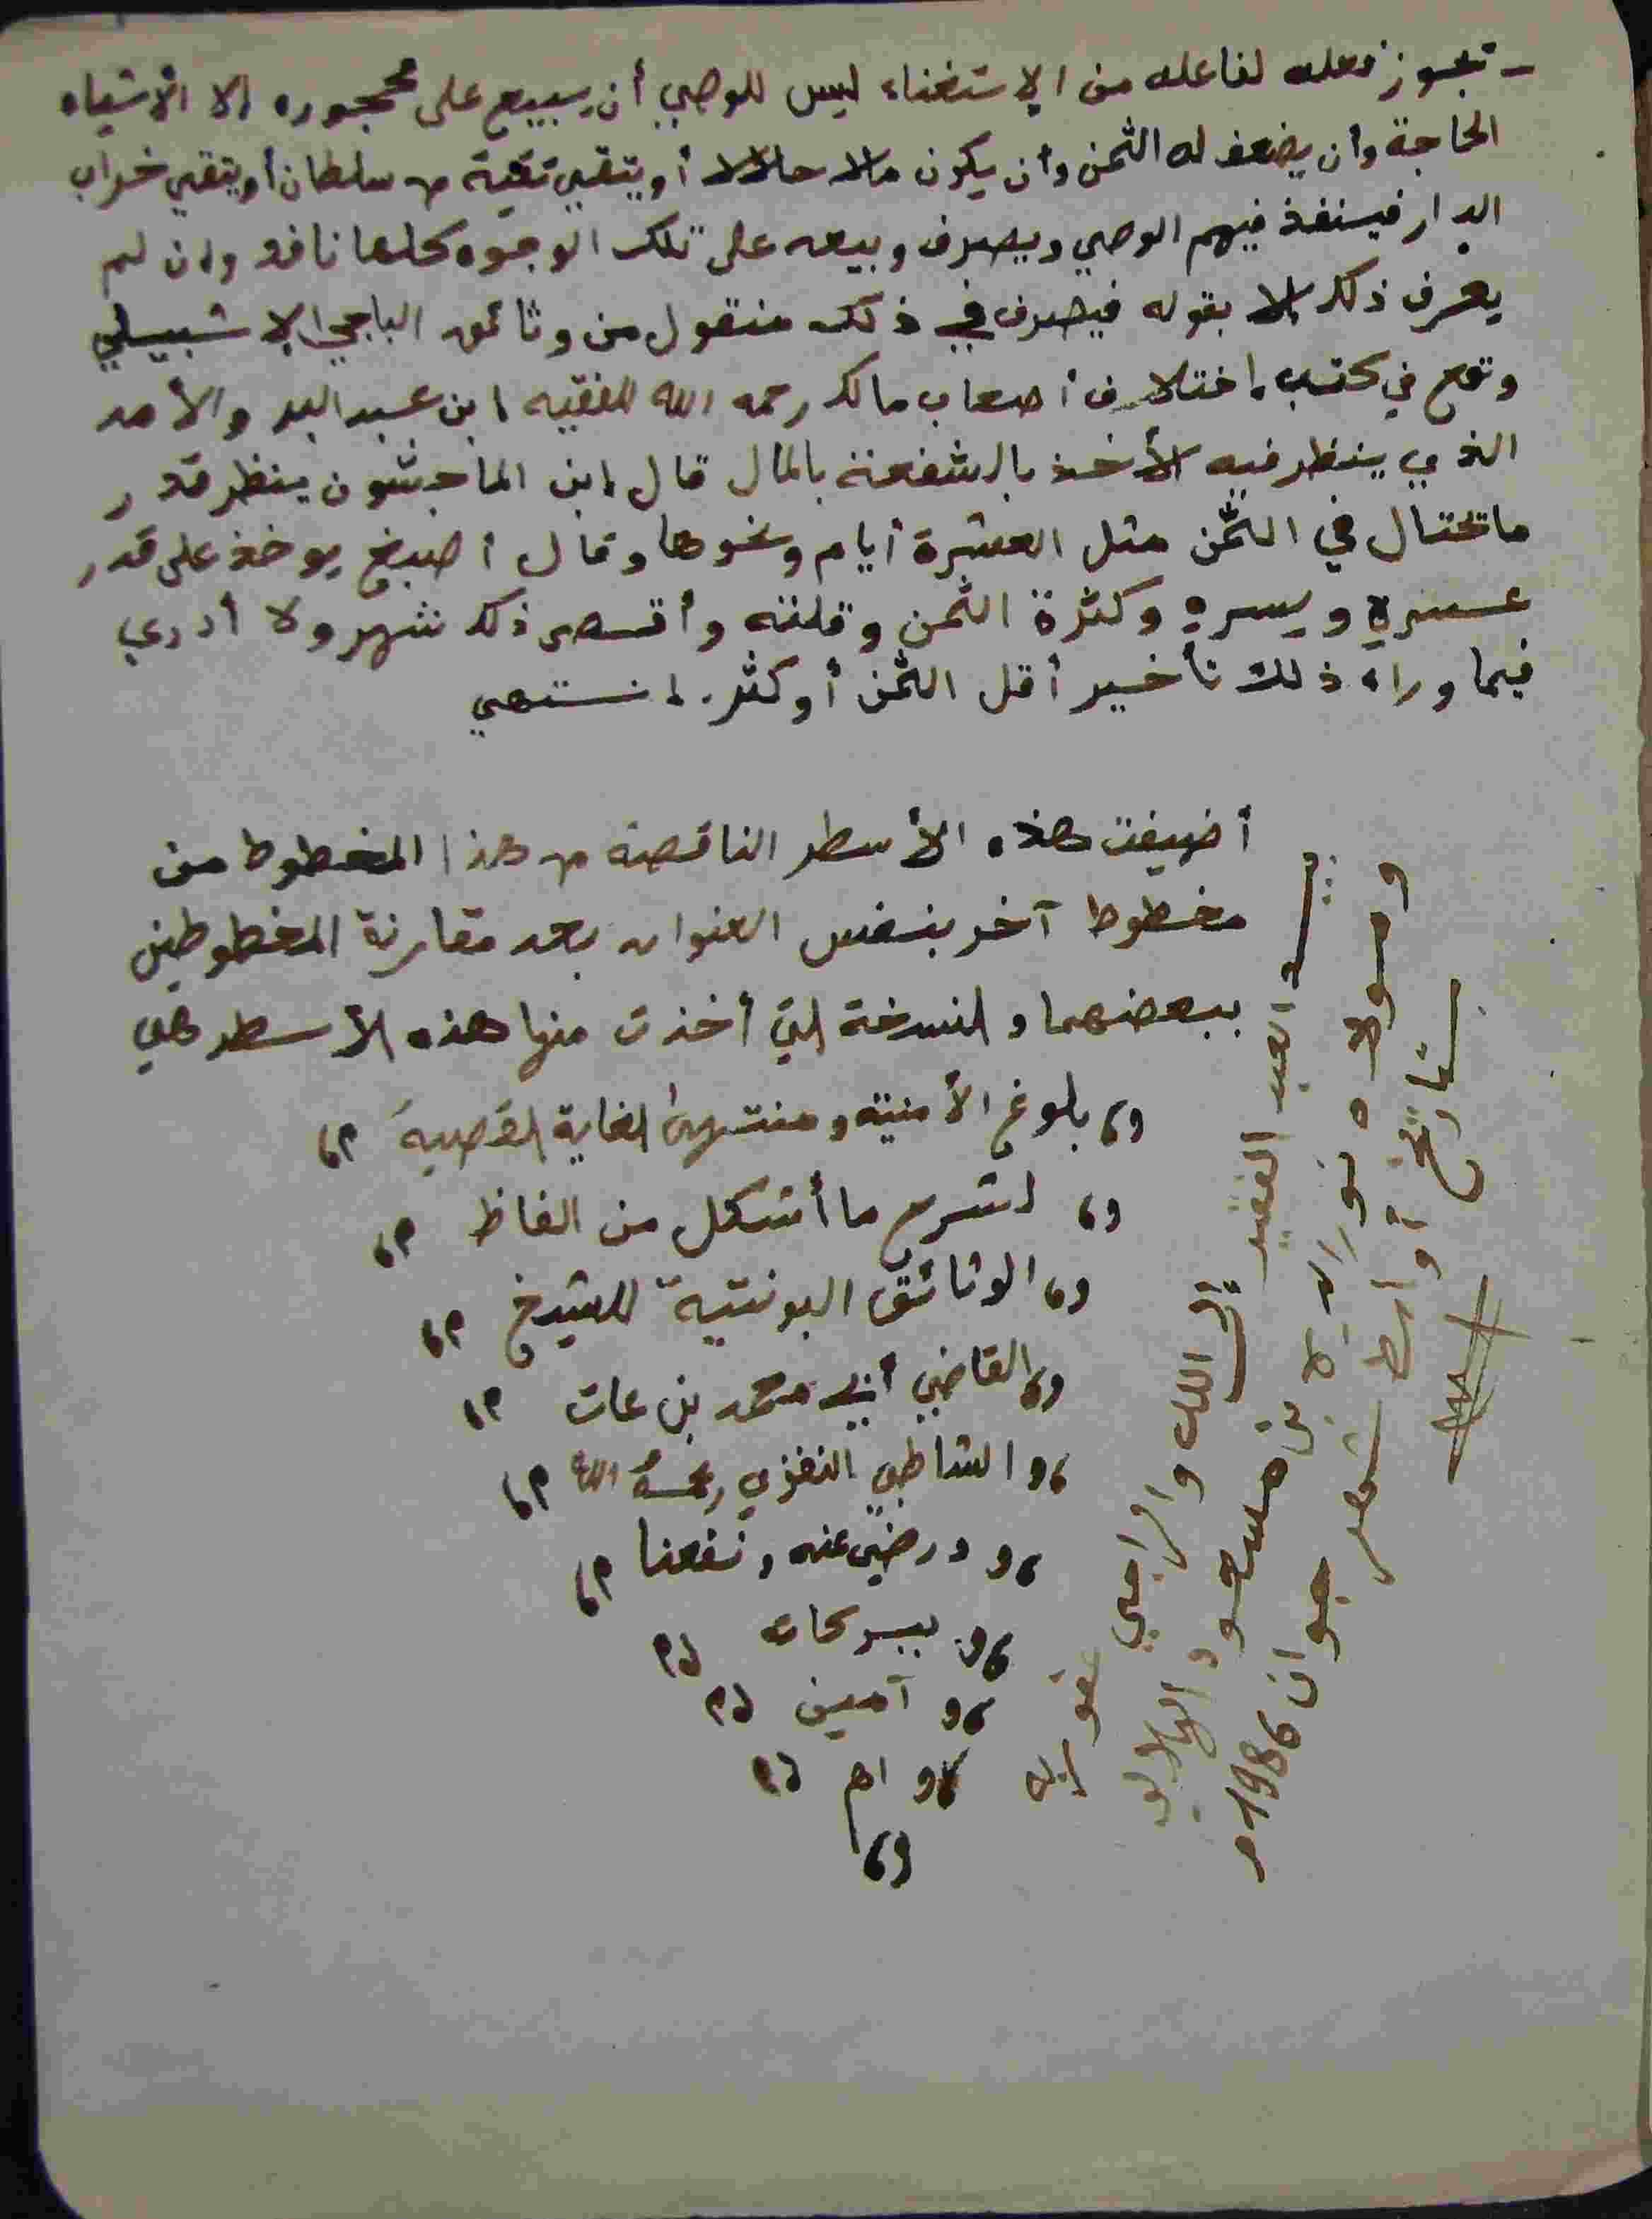 - تجوز فعله لفاعله من الإستغناء ليس للوصي أن يبيع على محجوره إلا الأشياء
الحاجة وأن يضعف له الثمن وأن يكون مالا حلالا أو يتقي تقية من سلطان أو يتقي خراب
الدار فينفذ فيهم الوصي ويصرف وبيعه على تلك الوجوه كلها نافذ وإن لم
يعرف ذلك إلا بقوله فيصرف في ذلك منقول من وثائق الباجي الإشبيلي
وقع في كتب اختلاف أصحاب مالك رحمه الله للفقيه ابن عبد البر والأمد
الذي ينظر فيه الأخذ بالشفعة بالمال قال ابن الماجشون ينظر قدر
ما تحتال في الثمن مثل العشرة أيام ونحوها وقال أصبغ يوخذ على قدر
عسره ويسره وكثرة الثمن وقلته وأقصى ذلك شهر ولا أدري
فيما وراء ذلك تأخير أقل الثمن أو كثر. انتهى
أضيفت هذه الأسطر الناقصة من هذا المخطوط من
مخطوط آخر بنفس العنوان بعد مقارنة المخطوطين
ببعضهما والنسخة التي أخذت منها هذه الأسطر هي
بلوغ الأمنية ومنتهى الغاية القصية
لشرح ما أشكل من الفاظ
الوثائق البونتية للشيخ
القاضي أبي محمد بن عات
الشاطبي النفزي رحمه الله
ورضي عنه ونفعنا
ببركاته
آمين
اهـ
العبد الفقير إلى الله والراجي عفو
ومولاه نور الدين بن مسعود
بتاريخ أواسط شهر جوان 1986م